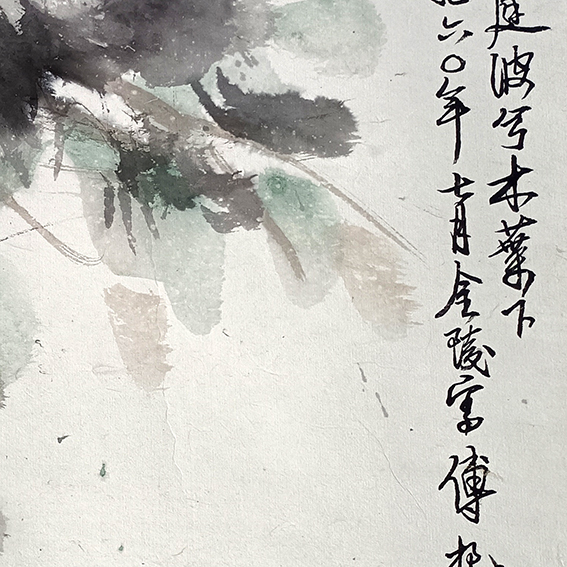 庭波兮木葉下
六〇年七月金陵寫傅